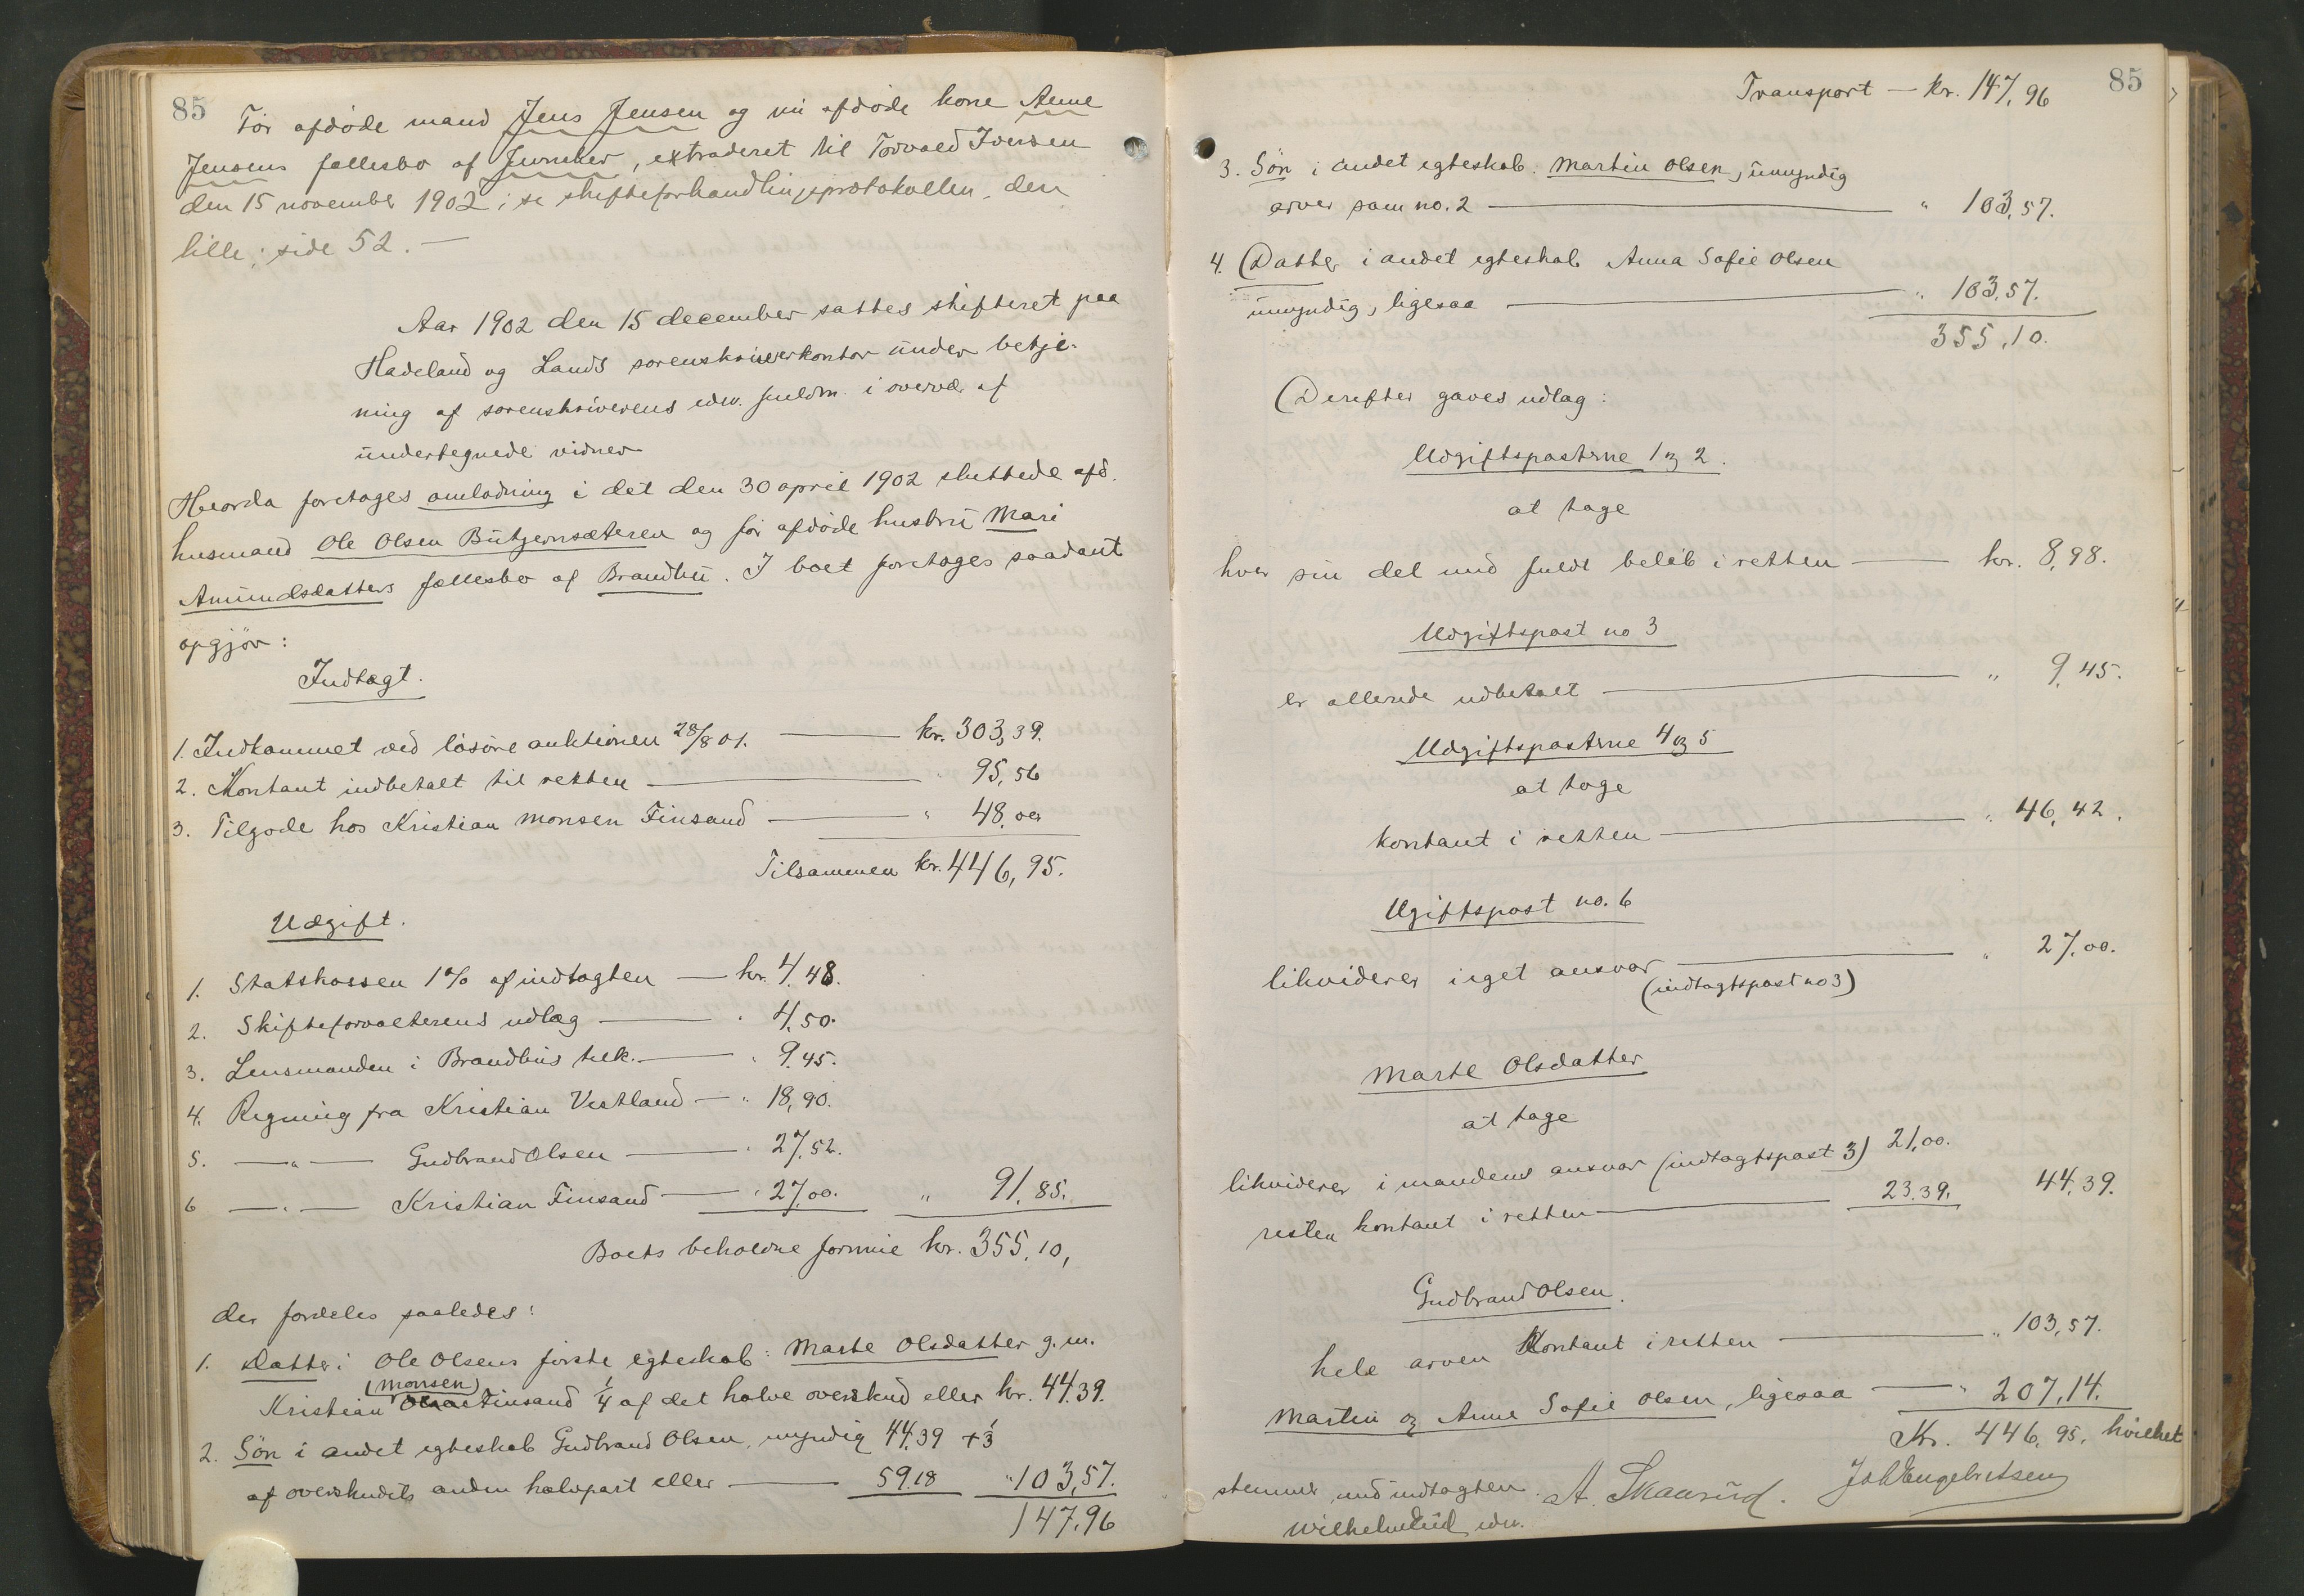 85
Før afdøde mand Jens Jensen og nu afdøde kone Anne
Jensens fællesbo af Jevnker, extraderet til Torvald Iversen
den 15 november 1902; se skifteforhandlingsprotokollen, den
lille, side 52. —
Aar 1902 den 15 december sattes skifteret paa
Hadeland og Lands sorenskriverkontor under betje-
ning af sorenskriverens edsv. fuldm. i overvær af
undertegnede vidner
Hvorda foretages omlodning i det den 30 april 1902 sluttede afd.
husmand Ole Olsen Butjernsæteren og før afdøde hustru Mari
Amundsdatters fællesbo af Brandbu. I boet foretages saadant
opgjør:
Indtægt.
1. Indkommet ved løsøre auktionen 28/8 01. — kr. 303,39.
2. Kontant indbetalt til retten — " 95,56
3. Tilgode hos Kristian Monsen Finsand — " 48,00
Tilsammen kr. 446,95.
Udgift.
1. Statskassen 1% af indtægten — kr. 4,48.
2. Skifteforvalterens udlæg — " 4,50.
3. Lensmanden i Brandbus tilk. — " 9,45.
4. Regning fra Kristian Vestland — " 18,90.
5. — " — Gudbrand Olsen — " 27,52.
6 — " — Kristian Finsand — " 27,00. " 91,85.
Boets beholdne formue kr. 355,10,
der fordeles saaledes:
1. Datter i Ole Olsens første egteskab: Marte Olsdatter g.m.
(Monsen)
Kristian Finsand 1/4 af det halve overskud eller kr. 44,39.
2. Søn i andet egteskab Gudbrand Olsen, myndig 44,39 + 1/3
af overskudets anden halvpart eller — 59.18 " 103,57.
147,96
85
Transport — kr. 147,96
3. Søn i andet egteskab. Martin Olsen, umyndig
arver som no. 2 — " 103,57.
4. Datter i andet egteskab Anna Sofie Olsen
umyndig, ligesaa — " 103,57.
355,10.
Derefter gaves udlæg:
Udgiftsposterne 1 og 2.
at tage
hver sin del med fuldt beløb i retten — kr. 8,98.
Udgiftspost no 3
er allerede udbetalt — " 9,45.
Udgiftsposterne 4 og 5
at tage
kontant i retten — " 46,42.
Ugiftspost no. 6
likviderer i eget ansvar — " 27,00.
(indtægtspost no 3)
Marte Olsdatter
at tage
likviderer i mandens ansvar (indtægtspost 3) 21,00.
resten kontant i retten — 23.39. 44,39.
Gudbrand Olsen.
hele arven Kontant i retten — " 103,57.
Martin og Anne Sofie Olsen, ligesaa — " 207,14.
Kr. 446,95, hvilket
stemmer med indtægten. A. Skaarud. Joh Engebretsen
Wilhelm edsv.